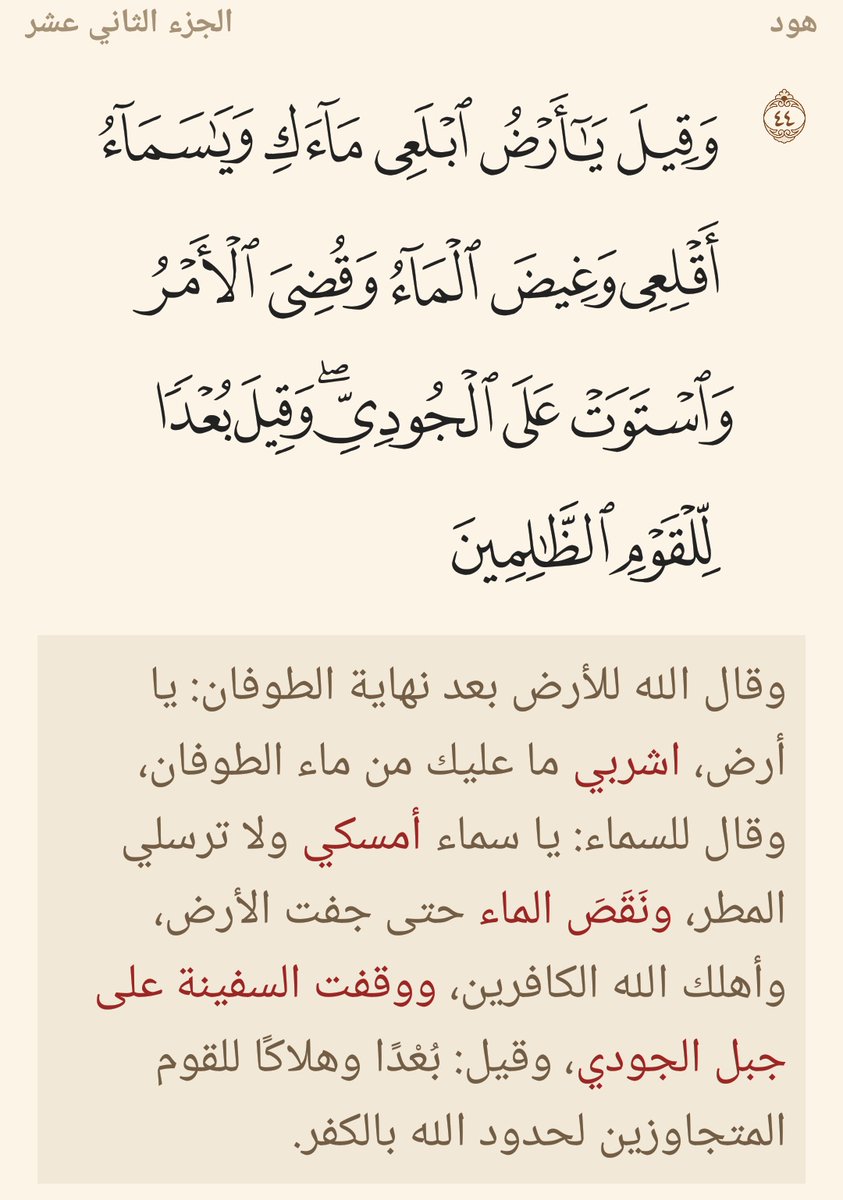 هود
الجزء الثاني عشر
٤٤
وَقِيلَ يَٰٓأَرۡضُ ٱبۡلَعِي مَآءَكِ وَيَٰسَمَآءُ
أَقۡلِعِي وَغِيضَ ٱلۡمَآءُ وَقُضِيَ ٱلۡأَمۡرُ
وَٱسۡتَوَتۡ عَلَى ٱلۡجُودِيِّۖ وَقِيلَ بُعۡدٗا
لِّلۡقَوۡمِ ٱلظَّٰلِمِينَ
وقال الله للأرض بعد نهاية الطوفان: يا
أرض، اشربي ما عليك من ماء الطوفان،
وقال للسماء: يا سماء أمسكي ولا ترسلي
المطر، ونَقَصَ الماء حتى جفت الأرض،
وأهلك الله الكافرين، ووقفت السفينة على
جبل الجودي، وقيل: بُعْدًا وهلاكًا للقوم
المتجاوزين لحدود الله بالكفر.